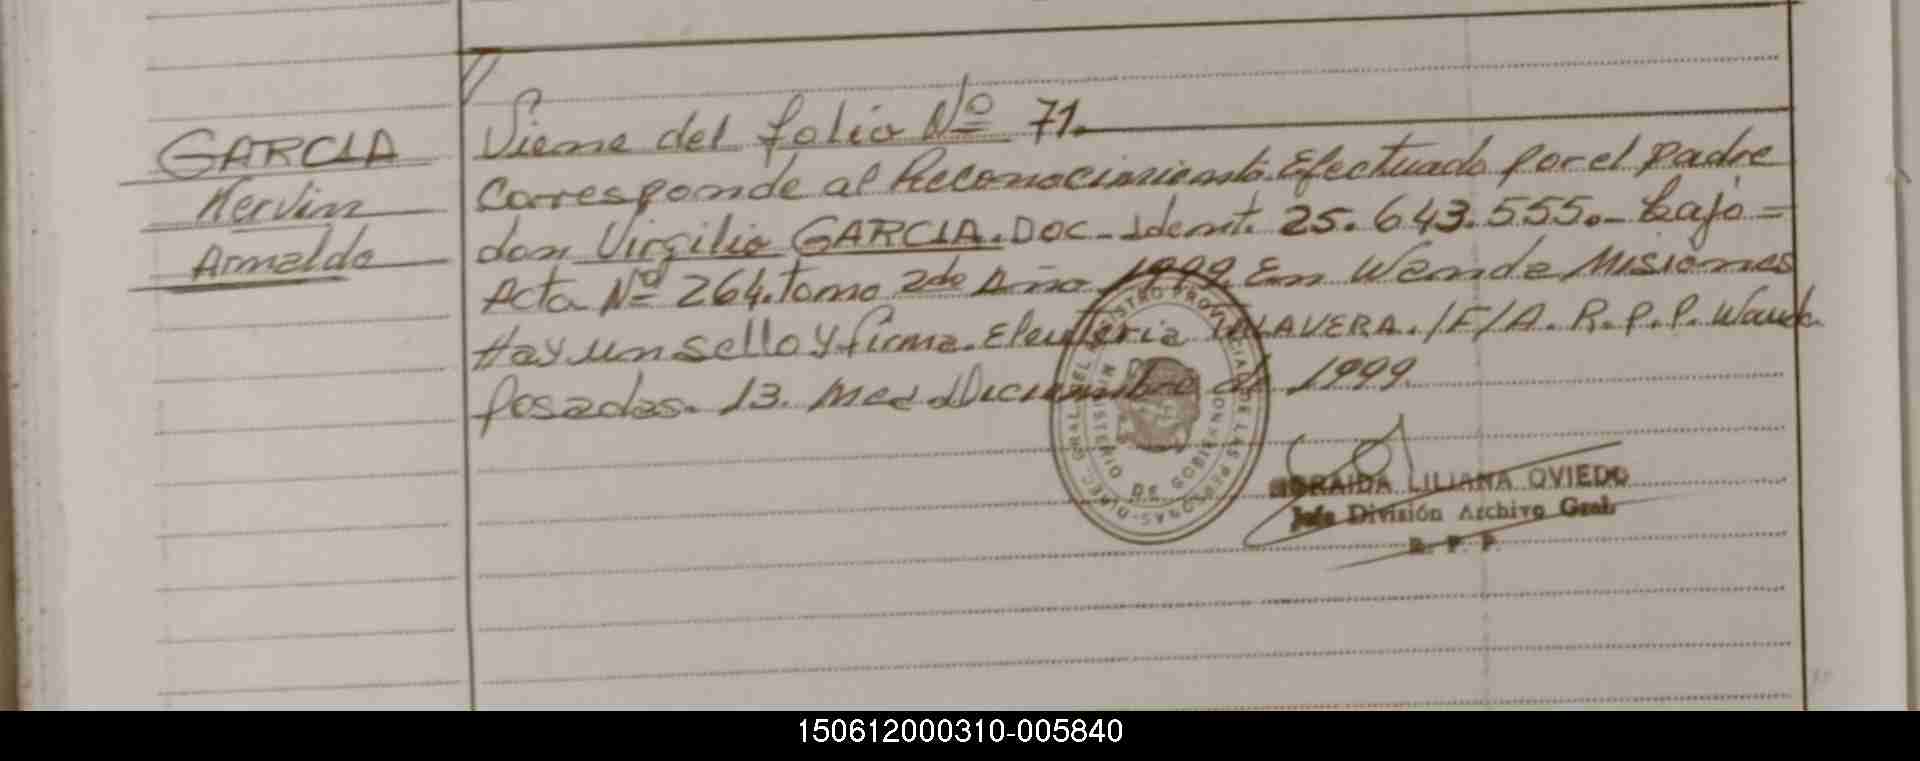 GARCIA
Nervin
Arnaldo
Viene del folio Nº 71.
Corresponde al Reconocimiento Efectuado por el padre
don Virgilio GARCIA. Doc. Ident. 25.643.555.- bajo=
Acta Nº 264. tomo 2do Año 1999. En Wanda Misiones
Hay un sello y firma. Eleuteria TALAVERA. /F/A. R.P.P. Wanda.
Posadas. 13. Diciembre de 1999
DIREC. GRAL. DEL REGISTRO PROVINCIAL DE LAS PERSONAS
MINISTERIO DE GOBIERNO
LILIANA OVIEDO
Jefe División Archivo Gral.
R. P. P.
150612000310-005840